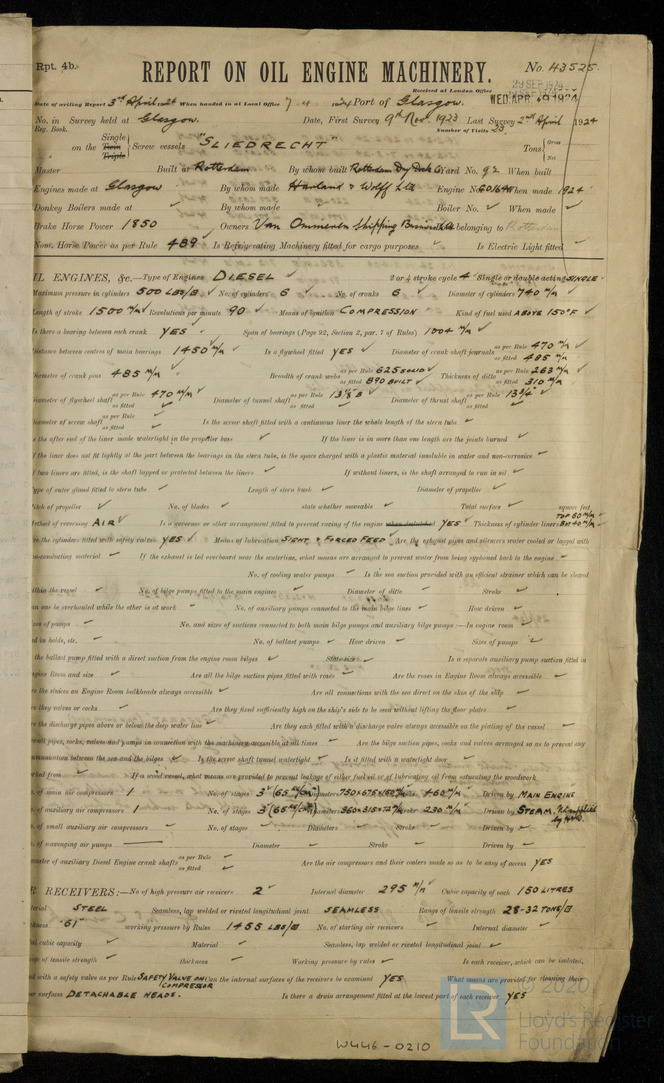 Rpt. 4b.
REPORT ON OIL ENGINE MACHINERY.
No. 43525.
Received at London Office
WED. APR. 9 1924
Date of writing Report 3rd April 1924 When handed in at Local Office 7. 4 1924 Port of Glasgow.
No. in Survey held at Glasgow. Date, First Survey 9th Nov. 1923 Last Survey 2nd April 1924
Reg. Book. Number of Visits 23
Single
on the Twin Screw vessels "SLIEDRECHT" Tons Gross
Triple Net
Master Built at Rotterdam By whom built Rotterdam Dry Dock Co Yard No. 92 When built
Engines made at Glasgow By whom made Harland & Wolff Ltd Engine No. When made 1924
Donkey Boilers made at ✓ By whom made ✓ Boiler No. ✓ When made ✓
Brake Horse Power 1850 Owners Van Ommeren Shipping Port belonging to Rotterdam
Nom. Horse Power as per Rule 489 Is Refrigerating Machinery fitted for cargo purposes ✓ Is Electric Light fitted ✓
IL ENGINES, &c.—Type of Engines DIESEL ✓ 2 or 4 stroke cycle 4 Single or double acting SINGLE
Maximum pressure in cylinders 500 LBS/□ ✓ No. of cylinders 6 ✓ No. of cranks 6 ✓ Diameter of cylinders 740 M/M ✓
Length of stroke 1500 M/M ✓ Revolutions per minute 90 ✓ Means of ignition COMPRESSION Kind of fuel used ABOVE 150°F ✓
Is there a bearing between each crank YES ✓ Span of bearings (Page 92, Section 2, par. 7 of Rules) 1004 M/M ✓
Distance between centres of main bearings 1450 M/M ✓ Is a flywheel fitted YES ✓ Diameter of crank shaft journals as per Rule 470 M/M ✓ as fitted 485 M/M
Diameter of crank pins 485 M/M ✓ Breadth of crank webs as per Rule 625 SOLID ✓ as fitted 890 BUILT ✓ Thickness of ditto as per Rule 263 M/M ✓ as fitted 310 M/M
Diameter of flywheel shaft as per Rule 470 M/M ✓ as fitted Diameter of tunnel shaft as per Rule as fitted Diameter of thrust shaft as per Rule 13 3/4" ✓ as fitted
Diameter of screw shaft as per Rule as fitted Is the screw shaft fitted with a continuous liner the whole length of the stern tube ✓
s the after end of the liner made watertight in the propeller boss ✓ If the liner is in more than one length are the joints burned ✓
f the liner does not fit tightly at the part between the bearings in the stern tube, is the space charged with a plastic material insoluble in water and non-corrosive ✓
f two liners are fitted, is the shaft lapped or protected between the liners ✓ If without liners, is the shaft arranged to run in oil ✓
Type of outer gland fitted to stern tube ✓ Length of stern bush ✓ Diameter of propeller ✓
Pitch of propeller ✓ No. of blades ✓ state whether moveable ✓ Total surface ✓ square feet
Method of reversing AIR ✓ Is a governor or other arrangement fitted to prevent racing of the engine when declutched YES ✓ Thickness of cylinder liners TOP 60 M/M BOT 40 M/M ✓
Are the cylinders fitted with safety valves YES ✓ Means of lubrication SIGHT & FORCED FEED ✓ Are the exhaust pipes and silencers water cooled or lagged with
non-conducting material ✓ If the exhaust is led overboard near the waterline, what means are arranged to prevent water from being syphoned back to the engine ✓
No. of cooling water pumps ✓ Is the sea suction provided with an efficient strainer which can be cleared
ithin the vessel ✓ No. of bilge pumps fitted to the main engines ✓ Diameter of ditto ✓ Stroke ✓
an one be overhauled while the other is at work ✓ No. of auxiliary pumps connected to the main bilge lines ✓ How driven ✓
zes of pumps ✓ No. and sizes of suctions connected to both main bilge pumps and auxiliary bilge pumps:—In engine room ✓
nd in holds, etc. ✓ No. of ballast pumps ✓ How driven ✓ Sizes of pumps ✓
the ballast pump fitted with a direct suction from the engine room bilges ✓ State size ✓ Is a separate auxiliary pump suction fitted in
ngine Room and size ✓ Are all the bilge suction pipes fitted with roses ✓ Are the roses in Engine Room always accessible ✓
re the sluices on Engine Room bulkheads always accessible ✓ Are all connections with the sea direct on the skin of the ship ✓
re they valves or cocks ✓ Are they fixed sufficiently high on the ship's side to be seen without lifting the floor plates ✓
re the discharge pipes above or below the deep water line ✓ Are they each fitted with a discharge valve always accessible on the plating of the vessel ✓
re all pipes, cocks, valves and pumps in connection with the machinery accessible at all times ✓ Are the bilge suction pipes, cocks and valves arranged so as to prevent any
ommunication between the sea and the bilges ✓ Is the screw shaft tunnel watertight ✓ Is it fitted with a watertight door ✓
rked from ✓ If a wood vessel, what means are provided to prevent leakage of either fuel oil or of lubricating oil from saturating the woodwork
o. of main air compressors 1 No. of stages 3 Diameters Stroke 460 M/M ✓ Driven by MAIN ENGINE
o. of auxiliary air compressors 1 No. of stages 3 Diameters 360 x 315 x 72 M/M Stroke 230 M/M ✓ Driven by STEAM, Not supplied by H&W.
o. of small auxiliary air compressors ✓ No. of stages ✓ Diameters ✓ Stroke ✓ Driven by ✓
o. of scavenging air pumps — Diameter ✓ Stroke ✓ Driven by ✓
ameter of auxiliary Diesel Engine crank shafts as per Rule ✓ as fitted ✓ Are the air compressors and their coolers made so as to be easy of access YES
R RECEIVERS:—No of high pressure air receivers 2 ✓ Internal diameter 295 M/M ✓ Cubic capacity of each 150 LITRES
terial STEEL Seamless, lap welded or riveted longitudinal joint SEAMLESS Range of tensile strength 28-32 TONS/□
ickness .61" working pressure by Rules 1455 LBS/□ No. of starting air receivers ✓ Internal diameter ✓
al cubic capacity ✓ Material ✓ Seamless, lap welded or riveted longitudinal joint ✓
nge of tensile strength ✓ thickness ✓ Working pressure by rules ✓ Is each receiver, which can be isolated,
ed with a safety valve as per Rule SAFETY VALVE ON COMPRESSOR Can the internal surfaces of the receivers be examined YES What means are provided for cleaning their
ner surfaces DETACHABLE HEADS. Is there a drain arrangement fitted at the lowest part of each receiver YES
W446-0210
LR
© 2020
Lloyd's Register
Foundation